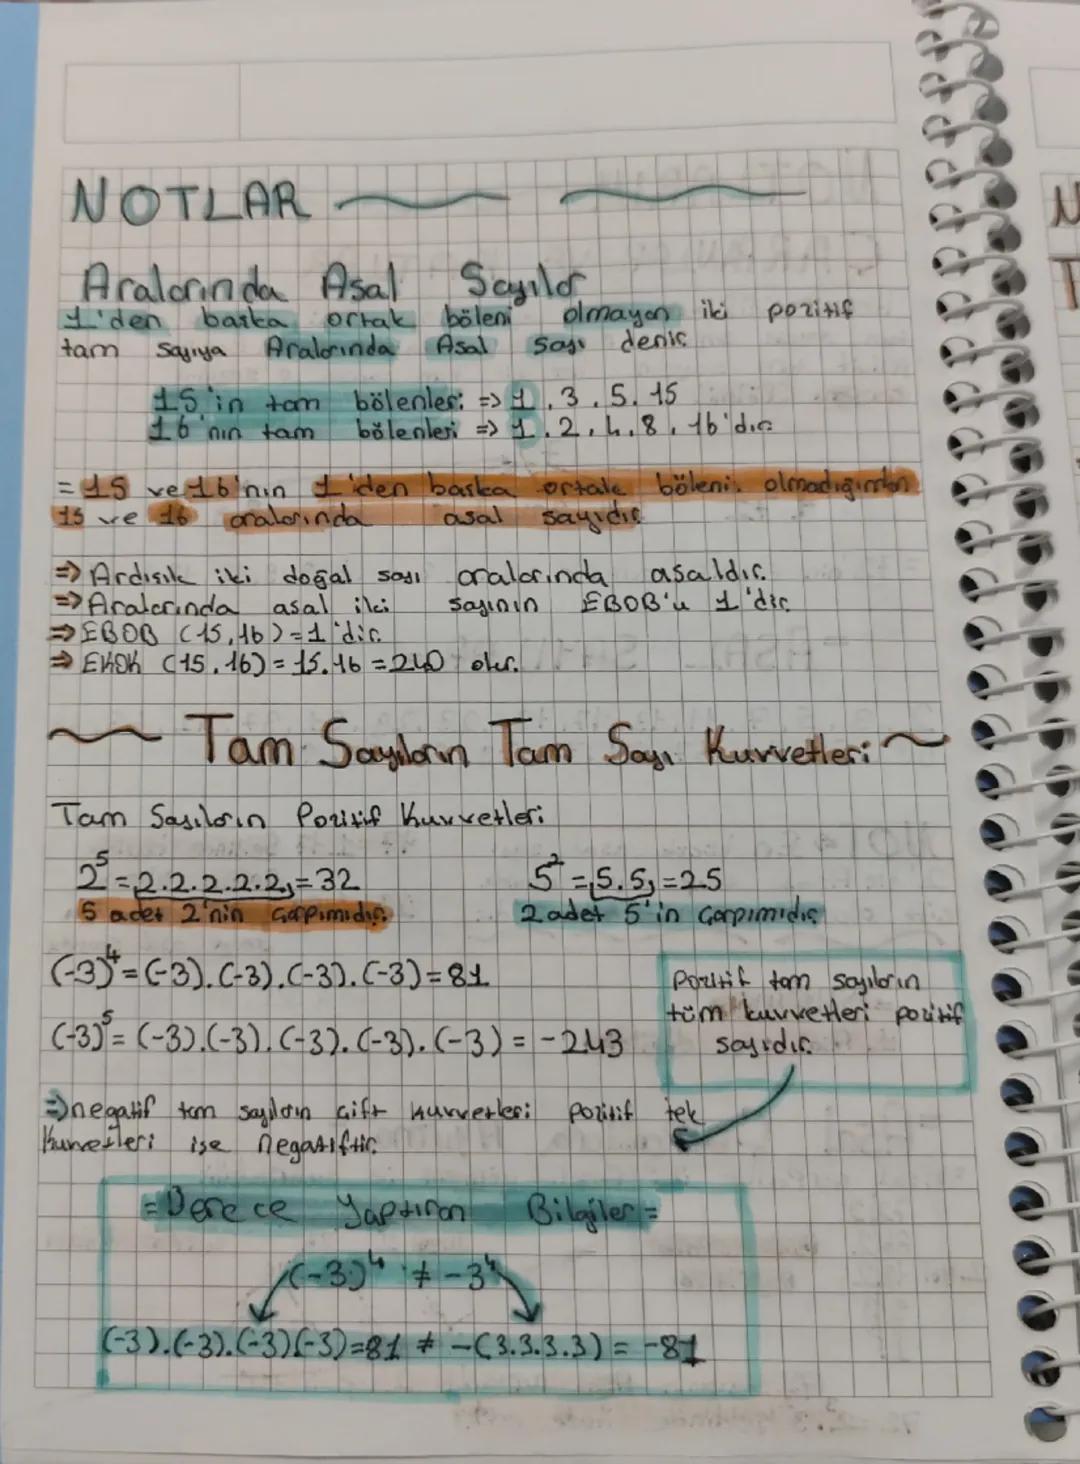 NOTLAR
Aralarında Asal Sayılar
1'den başka ortak böleni olmayan iki pozitif
tam sayıya Aralarında Asal sayı denir
15'in tam bölenler: => 1.3.5.15
16'nın tam bölenleri => 1.2.4.8.16'dır.
= 15 ve 16'nın 1'den başka ortak böleni olmadığından
15 ve 16 aralarında asal sayıdır
=> Ardışık iki doğal sayı aralarında asaldır.
=> Aralarında asal iki sayının EBOB'u 1'dir
=> EBOB (15,16)=1'dir.
=> EKOK (15.16)=15.16=240 olur.
Tam Sayıların Tam Sayı Kuvvetleri
Tam Sayıların Pozitif Kuvvetleri
2⁵=2.2.2.2.2=32 5²=5.5=25
5 adet 2'nin Çarpımıdır. 2 adet 5'in Çarpımıdır
(-3)⁴=(-3).(-3).(-3).(-3)=81
Pozitif tam sayıların
tüm kuvvetleri pozitif
sayıdır.
(-3)⁵=(-3).(-3).(-3).(-3).(-3)=-243
=> negatif tam sayıların çift kuvvetleri pozitif tek
kuvvetleri ise negatiftir.
= Derece Yaptıran Bilgiler =
(-3)⁴ ≠ -3⁴
(-3).(-3).(-3)(-3)=81 ≠ -(3.3.3.3)=-81